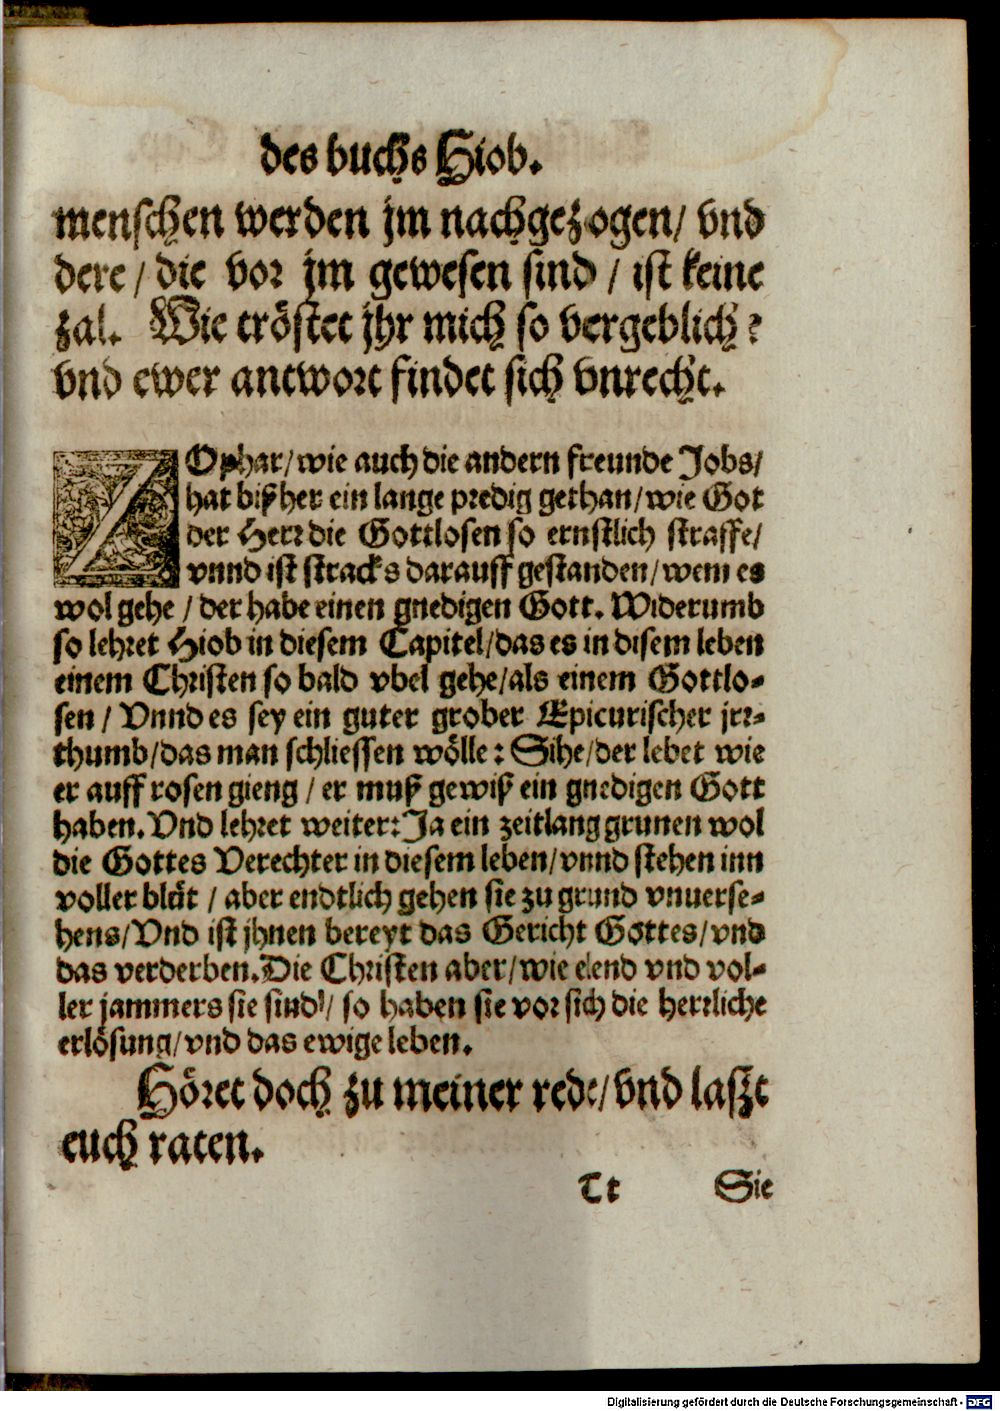 des buchs Hiob.
menschen werden jm nachgezogen/ vnd
dere / die vor jm gewesen sind / ist keine
zal. Wie tröstet jhr mich so vergeblich?
vnd ewer antwort findet sich vnrecht.
ZOphar/wie auch die andern freunde Jobs/
hat bißher ein lange predig gethan/wie Got
der Herr die Gottlosen so ernstlich straffe/
vnnd ist stracks darauff gestanden/wem es
wol gehe / der habe einen gnedigen Gott. Widerumb
so lehret Hiob in diesem Capitel/das es in disem leben
einem Christen so bald vbel gehe/als einem Gottlo-
sen / Vnnd es sey ein guter grober Epicurischer jrr-
thumb/das man schliessen wölle: Sihe/der lebet wie
er auff rosen gieng / er muß gewiß ein gnedigen Gott
haben. Vnd lehret weiter: Ja ein zeitlang grunen wol
die Gottes Verechter in diesem leben/vnnd stehen inn
voller blüt / aber endtlich gehen sie zu grund vnuerse-
hens/Vnd ist jhnen bereyt das Gericht Gottes/vnd
das verderben. Die Christen aber/wie elend vnd vol-
ler jammers sie sind/ so haben sie vor sich die herrliche
erlösung/vnd das ewige leben.
Höret doch zu meiner rede/vnd laszt
euch raten.
Tt Sie
Digitalisierung gefördert durch die Deutsche Forschungsgemeinschaft - DFG